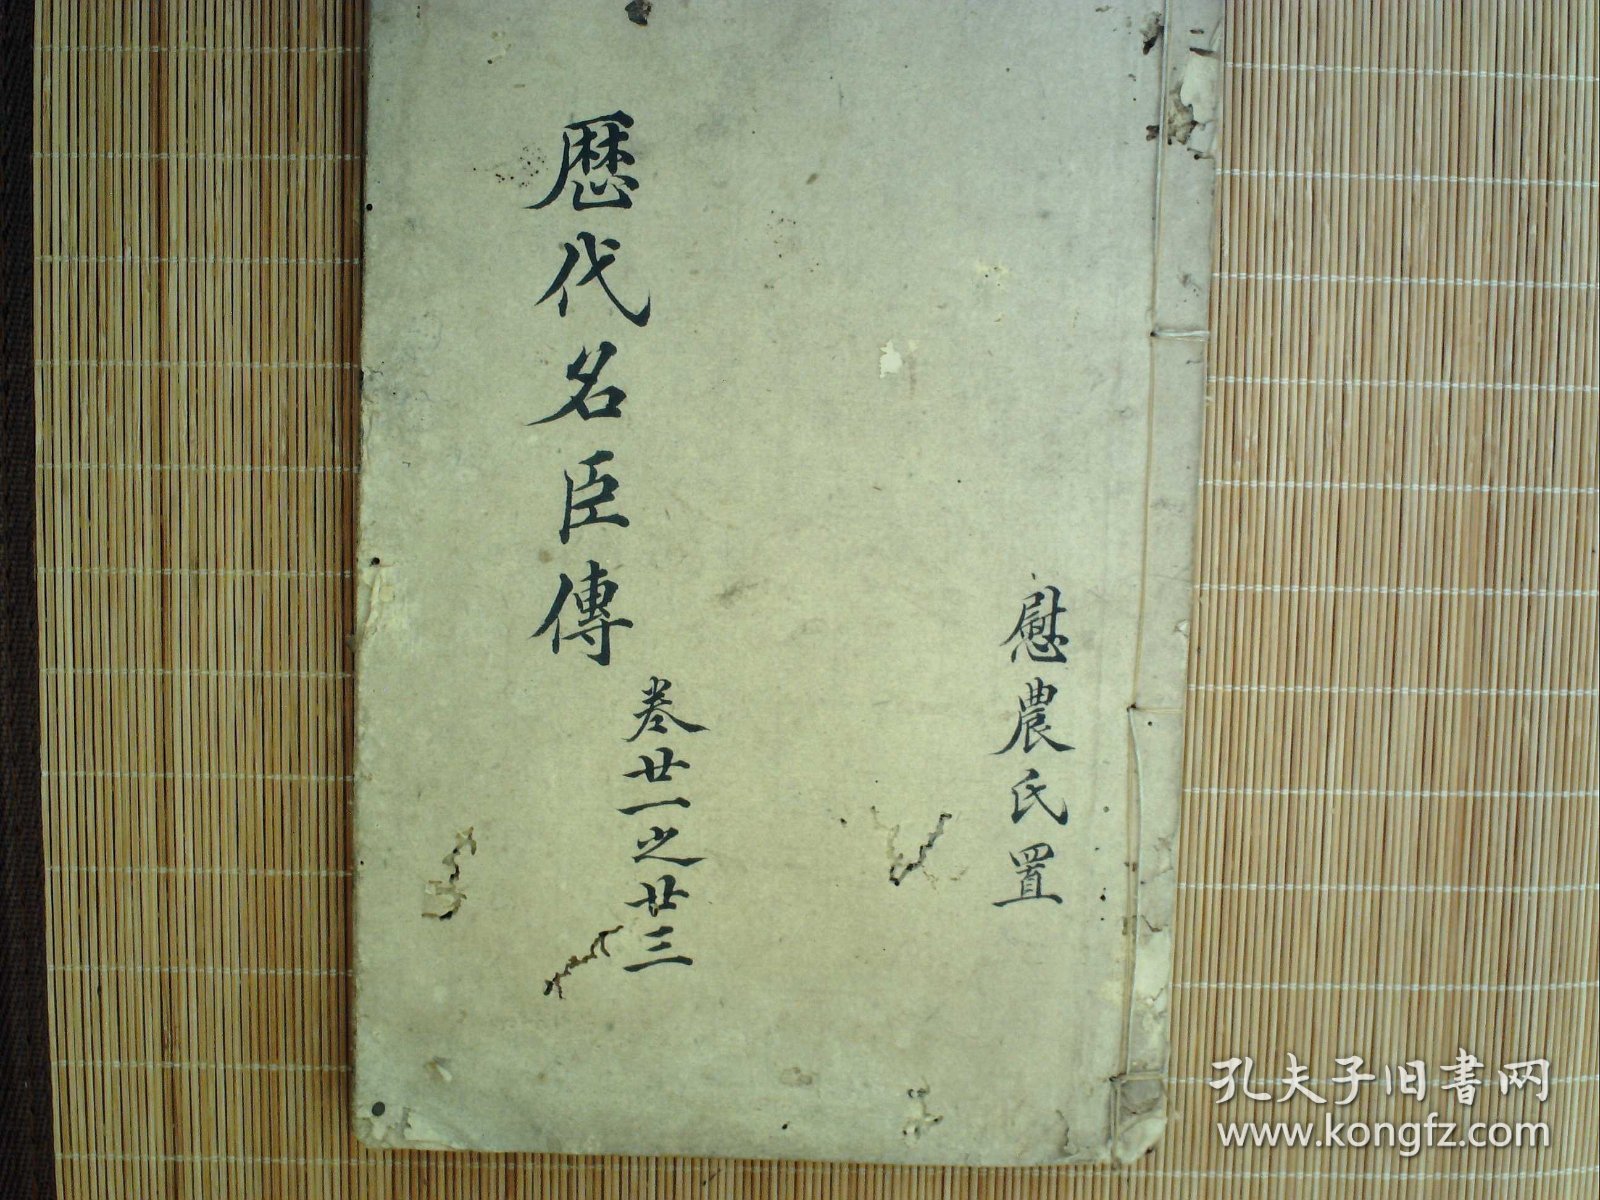 慰農氏置
歷代名臣傳
卷廿一之廿三
孔夫子旧書网
www.kongfz.com